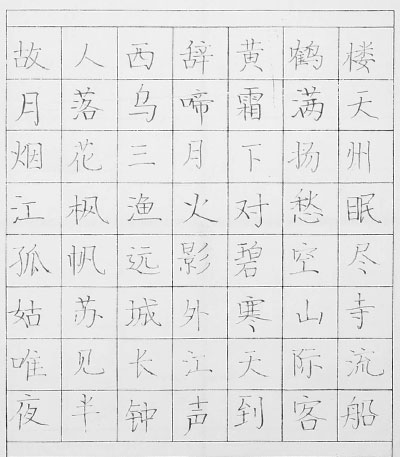 故人西辞黄鹤楼
月落乌啼霜满天
烟花三月下扬州
江枫渔火对愁眠
孤帆远影碧空尽
姑苏城外寒山寺
唯见长江天际流
夜半钟声到客船